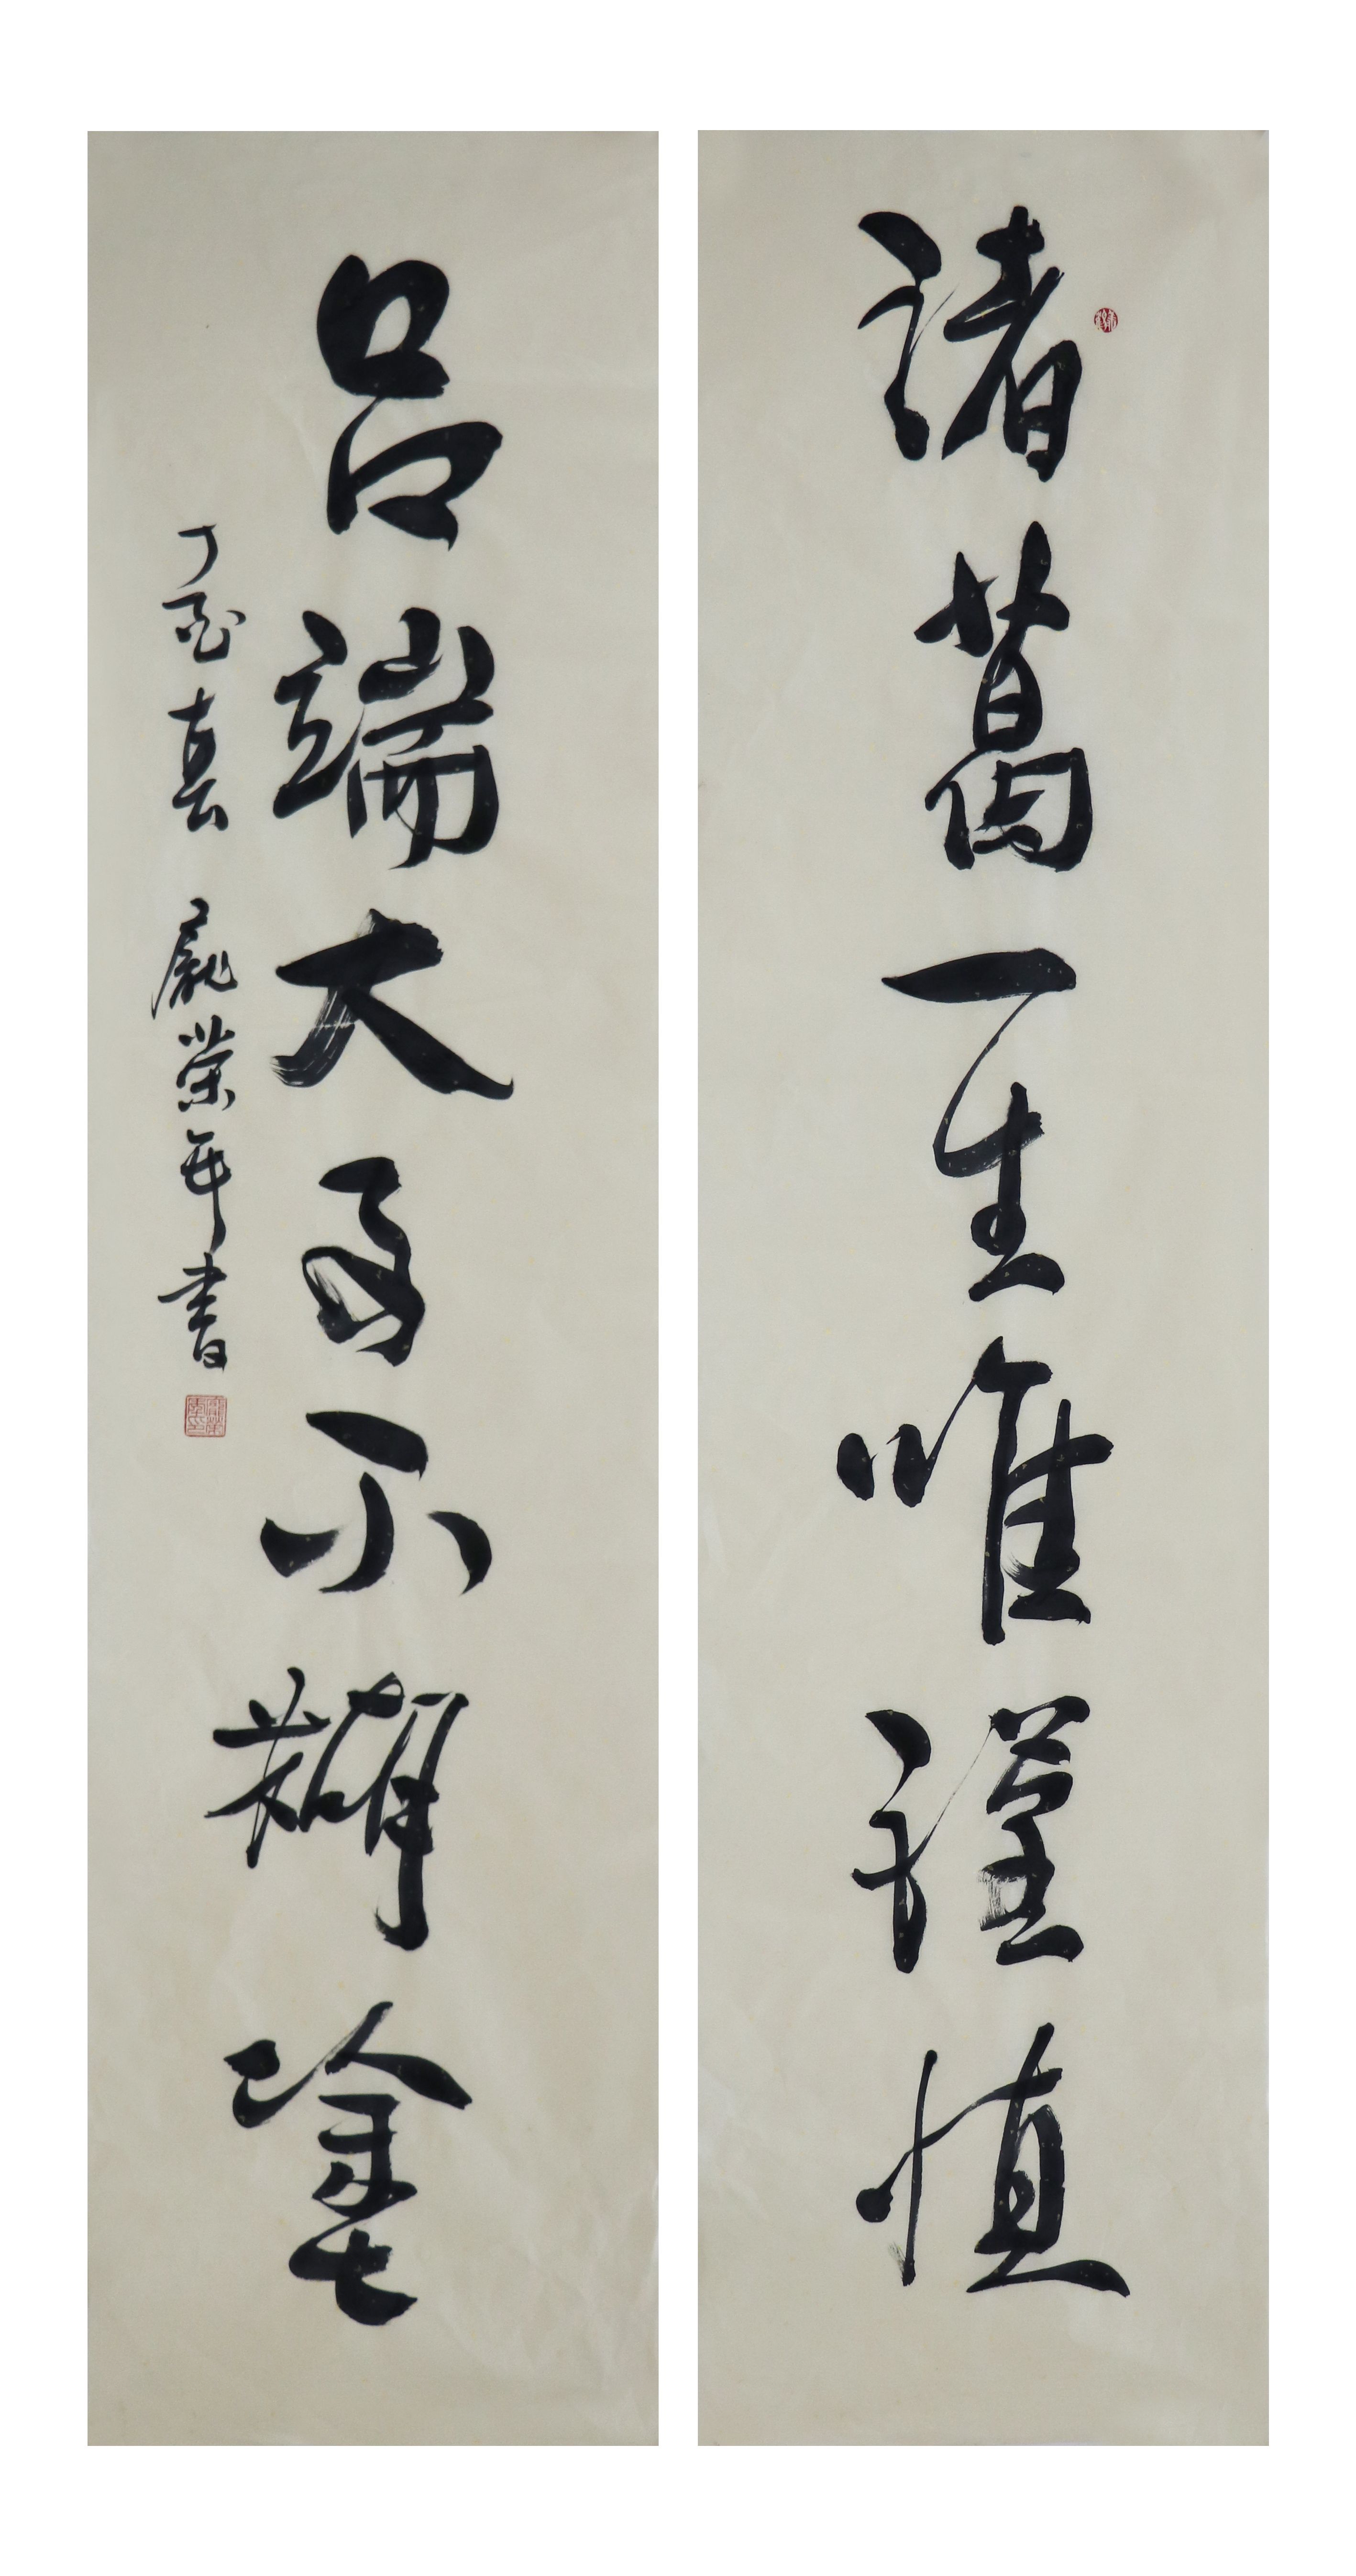 諸葛一生唯謹慎
吕端大事不糊塗
丁酉春 龐榮年書